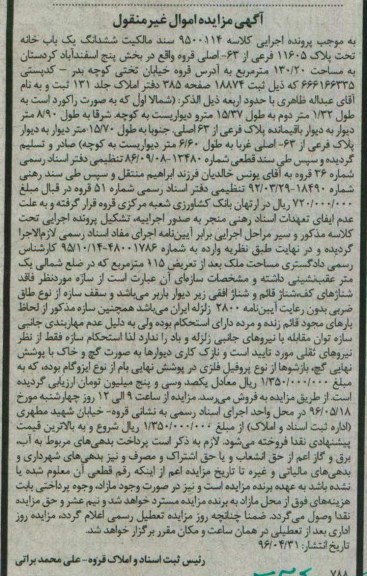 آگهی مزایده اموال غیرمنقول
به موجب پرونده اجرایی کلاسه ۹۵۰۰۱۱۴ سند مالکیت ششدانگ یک باب خانه
تحت پلاک ۱۱۶۰۵ فرعی از ۶۳- اصلی قروه واقع در بخش پنج اسفندآباد کردستان
به مساحت ۱۳۰/۲۰ مترمربع به آدرس قروه خیابان تختی کوچه بدر – کدپستی
۶۶۶۱۶۶۳۳۵ که ذیل ثبت ۱۸۸۷۴ صفحه ۳۸۵ دفتر املاک جلد ۱۳۱ ثبت و به نام
آقای عبداله ظاهری با حدود اربعه ذیل الذکر: (شمالا اول که به صورت راکورد است به
طول ۱/۳۲ متر دوم به طول ۱۵/۳۷ مترو دیواریست به کوچه شرقا به طول ۸/۹۰ متر
دیوار به دیوار باقیمانده پلاک فرعی از ۶۳ اصلی جنوبا به طول ۱۵/۷۰ متر دیوار به دیوار
پلاک فرعی از ۶۳- اصلی غربا به طول ۶/۶۰ متر دیواریست به کوچه) صادر و تسلیم
گردیده و سپس طی سند قطعی شماره ۱۳۴۸۰-۸۶/۰۹/۰۸ تنظیمی دفتر اسناد رسمی
شماره ۳۶ قروه به آقای یونس خالدیان فرزند ابراهیم منتقل و سپس طی سند رهنی
شماره ۱۸۴۹۰-۹۲/۰۳/۲۹ تنظیمی دفتر اسناد رسمی شماره ۵۱ قروه در قبال مبلغ
۷۲۰/۰۰۰/۰۰۰ ریال در ارتهان بانک کشاورزی شعبه مرکزی قروه قرار گرفته و به علت
عدم ایفای تعهدات اسناد رهنی منجر به صدور اجراییه، تشکیل پرونده اجرایی تحت
کلاسه مذکور و سیر مراحل اجرایی برابر آیین‌نامه اجرای مفاد اسناد رسمی لازم‌الاجرا
گردیده و در نهایت طبق نظریه وارده به شماره ۴۸۰۰۱۷۸۶-۹۵/۱۰/۱۴ کارشناس
رسمی دادگستری مساحت ملک بعد از تعریض ۱۱۵ مترمربع که در ضلع شمالی یک
متر عقب‌نشینی داشته و مشخصات سازه‌ای آن عبارت است از سازه موردنظر فاقد
شناژهای کف،شناژ قائم و شناژ افقی زیر دیوار باربر می‌باشد و سقف سازه از نوع طاق
ضربی بدون رعایت آیین‌نامه ۲۸۰۰ زلزله ایران می‌باشد همچنین سازه مذکور از لحاظ
بارهای موجود قائم زنده و مرده دارای استحکام بوده ولی به دلیل عدم مهاربندی جانبی
سازه توان مقابله با نیروهای جانبی زلزله و باد را ندارد لذا استحکام سازه فقط از نظر
نیروهای ثقلی مورد تایید است و نازک کاری دیوارها به صورت گچ و خاک با پوشش
نهایی گچ، بازشوها از نوع پروفیل فلزی در پوشش نهایی بام از نوع ایزوگام بوده، که به
مبلغ ۱/۳۵۰/۰۰۰/۰۰۰ ریال معادل یکصد وسی و پنج میلیون تومان ارزیابی گردیده
است. از طریق مزایده به فروش می‌رسد، مزایده از ساعت ۹ الی ۱۲ روز چهارشنبه مورخ
۹۶/۰۵/۱۸ در محل واحد اجرای اسناد رسمی به نشانی قروه- خیابان شهید مطهری
(اداره ثبت اسناد و املاک) از مبلغ ۱/۳۵۰/۰۰۰/۰۰۰ ریال شروع و به بالاترین قیمت
پیشنهادی نقدا فروخته می‌شود. لازم به ذکر است پرداخت بدهی‌های مربوط به آب،
برق و گاز اعم از حق انشعاب و یا حق اشتراک و مصرف و نیز بدهی‌های شهرداری و
بدهی‌های مالیاتی و غیره تا تاریخ مزایده اعم از اینکه رقم قطعی آن معلوم شده یا
نشده باشد به عهده برنده مزایده است و نیز در صورت وجود مازاد، وجوه پرداختی بابت
هزینه‌های فوق از محل مازاد به برنده مزایده مسترد خواهد شد و نیم عشر و حق مزایده
نقدا وصول می‌گردد. ضمنا چنانچه روز مزایده تعطیل رسمی اعلام گردد، مزایده روز
اداری بعد از تعطیلی در همان ساعت و مکان مقرر برگزار خواهد شد.
تاریخ انتشار: ۹۶/۰۴/۳۱
رئیس ثبت اسناد و املاک قروه- علی محمد براتی
۷۸۸